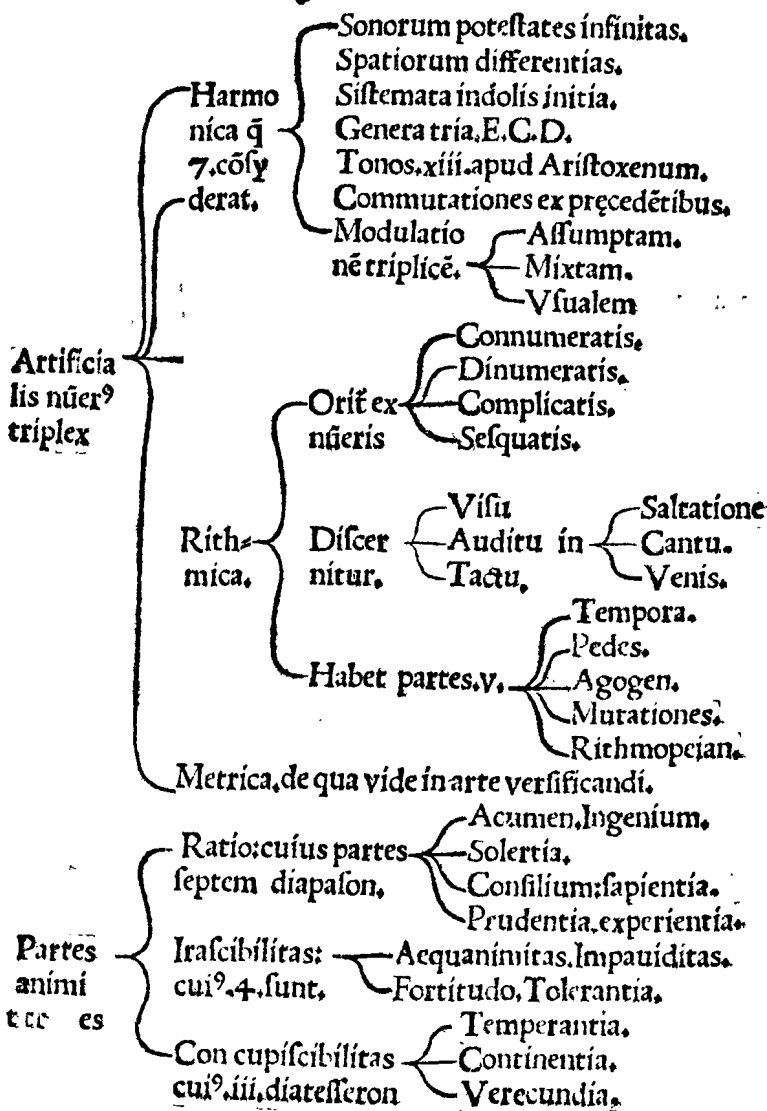 Sonorum poteſtates infinitas.
Spatiorum differentias.
Harmo
nica q̄
7. cōſy
derat.
Siſtemata indolis initia.
Genera tria. E. C. D.
Tonos. xiii. apud Ariſtoxenum.
Commutationes ex pręcedētibus.
Modulatio
nē triplicē.
Aſſumptam.
Mixtam.
Vſualem
Artificia
lis nūerꝰ
triplex
Orit̄ ex
nūeris
Connumeratis.
Dinumeratis.
Complicatis.
Seſquatis.
Rith⸗
mica.
Diſcer
nitur.
Viſu
Auditu in
Tactu.
Saltatione
Cantu.
Venis.
Habet partes. v.
Tempora.
Pedes.
Agogen.
Mutationes.
Rithmopeian.
Metrica, de qua vide in arte verſificandi.
Partes
animi
es
Ratio: cuius partes
ſeptem diapaſon.
Acumen. Ingenium.
Solertia.
Conſilium: ſapientia.
Prudentia. experientia.
Iraſcibilitas:
cuiꝰ. 4. ſunt.
Aequanimitas. Impauiditas.
Fortitudo. Tolerantia.
Con cupiſcibilitas
cuiꝰ. iii. diateſſeron
Temperantia.
Continentia.
Verecundia.